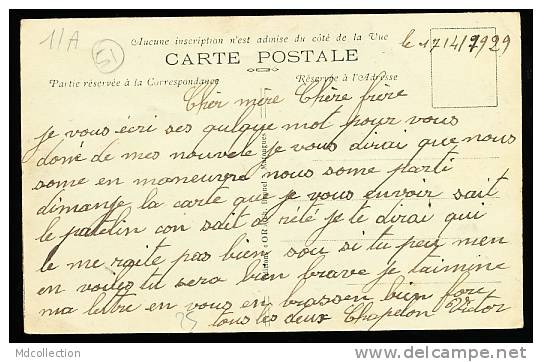 11A
15
Aucune inscription n'est admise du côté de la Vue
CARTE POSTALE
Partie réservée à la Correspondance
Réservée à l'Adresse
le 17/4/1929
Cher mère Chère frère
je vous écri ses qulque mot pour vous
doné de mes nouvele je vous dirai que nous
some en maneuvre nous some parti
dimange la carte que je vous envoir sait
le patelin con sait arété je te dirai qui
le me raite pas bien sou si tu peu men
en voiles tu sera bien brave je taimine
ma letre en vous en brassen bien fore
tous les deux Chapelon Victor
25
Mdcollection
www.delcampe.net